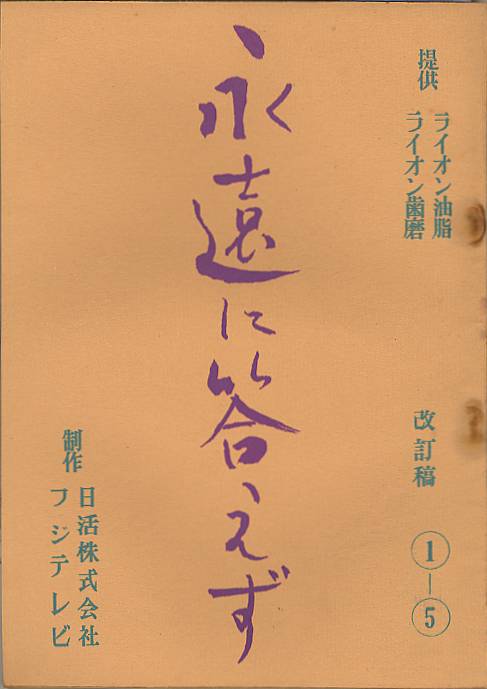 提供
ライオン油脂
ライオン歯磨
改訂稿
①―⑤
永遠に答えず
制作
日活株式会社
フジテレビ